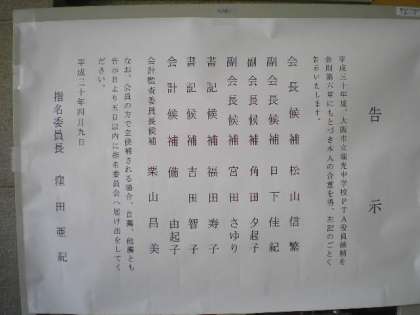 告示
平成二十年度、大阪市立瑞光中学校PTA役員候補を
会則第六章にもとづき本人の合意を得、左記のごとく
告示いたします。
会長候補 松山信繁
副会長候補 日下佳紀
副会長候補 角田夕起子
副会長候補 宮田さゆり
書記候補 福田寿子
書記候補 吉田智子
会計候補 備由起子
会計監査委員長候補 栗山昌美
なお、会員の方で立候補される場合、自薦、他薦とも
告示日より五日以内に指名委員会へ届け出をしてく
ださい。
平成二十年四月九日
指名委員長 窪田亜紀